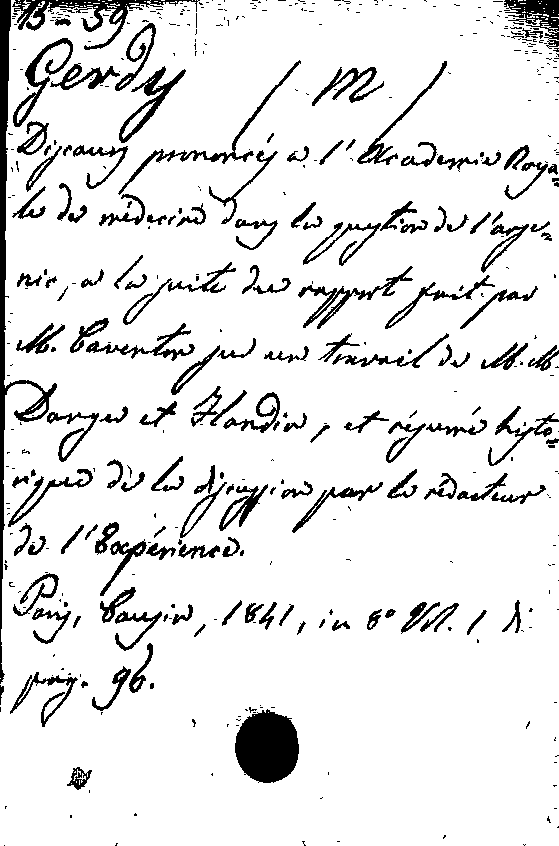 B-59
Gerdy ( M )
Discours prononcés a l'Academie Roya=
le de médecine dans la question de l'arse=
nic, a la suite du rapport fait par
M. Caventon sur un travail de M.M.
Danger et Flandin, et résumé histo=
rique de la discussion par le rédacteur
de l'Expérience.
Paris, Cousin, 1841, in 8° Vol. 1 di
pag. 96.